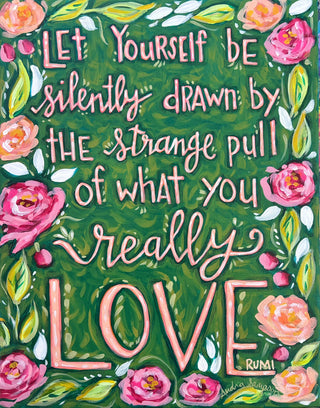 LET YOURSELF BE
silently DRAWN by
THE strange pull
of WHAT YOU
really
LOVE
RUMI